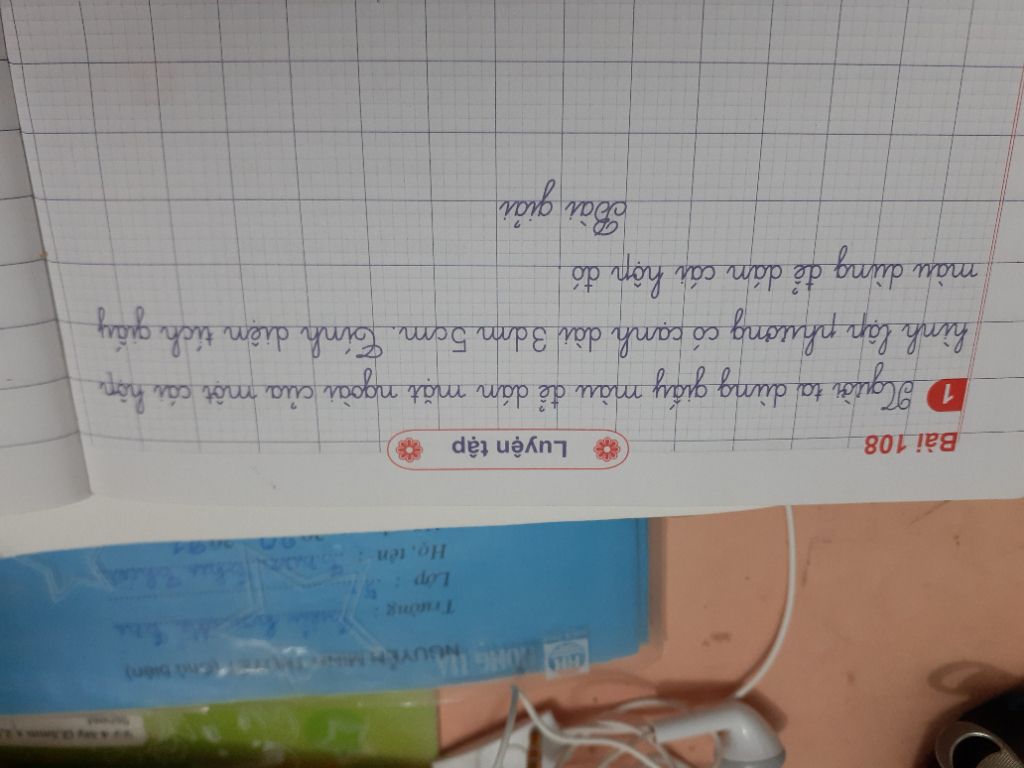 Bài 108
Luyện tập
1 Người ta dùng giấy màu để dán mặt ngoài của một cái hộp
hình lập phương có cạnh dài 3dm 5cm. Tính diện tích giấy
màu dùng để dán cái hộp đó
Bài giải
NGUYỄN MINH THUYẾT (Chủ biên)
HỒNG HÀ
Trường :
Lớp :
Họ, tên :